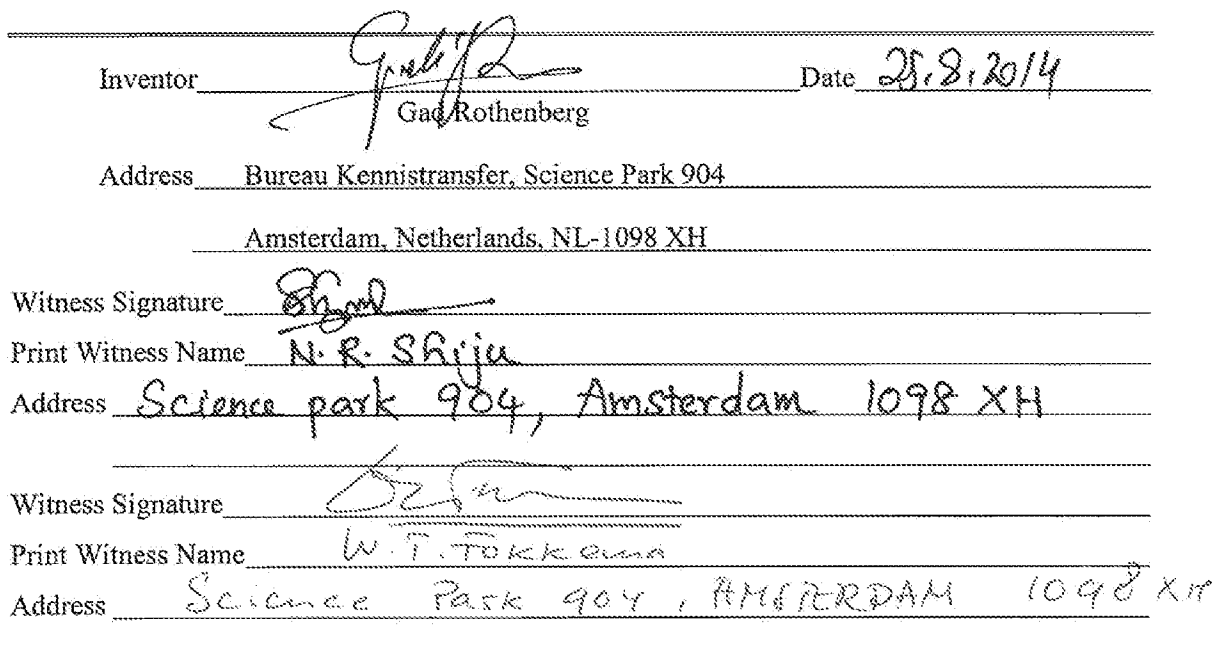 Inventor Date 25.8.2014
Gad Rothenberg
Address Bureau Kennistransfer, Science Park 904
Amsterdam, Netherlands, NL-1098 XH
Witness Signature
Print Witness Name N. R. Shiju
Address Science park 904, Amsterdam 1098 XH
Witness Signature
Print Witness Name W. T. Fokkema
Address Science Park 904, AMSTERDAM 1098 XH